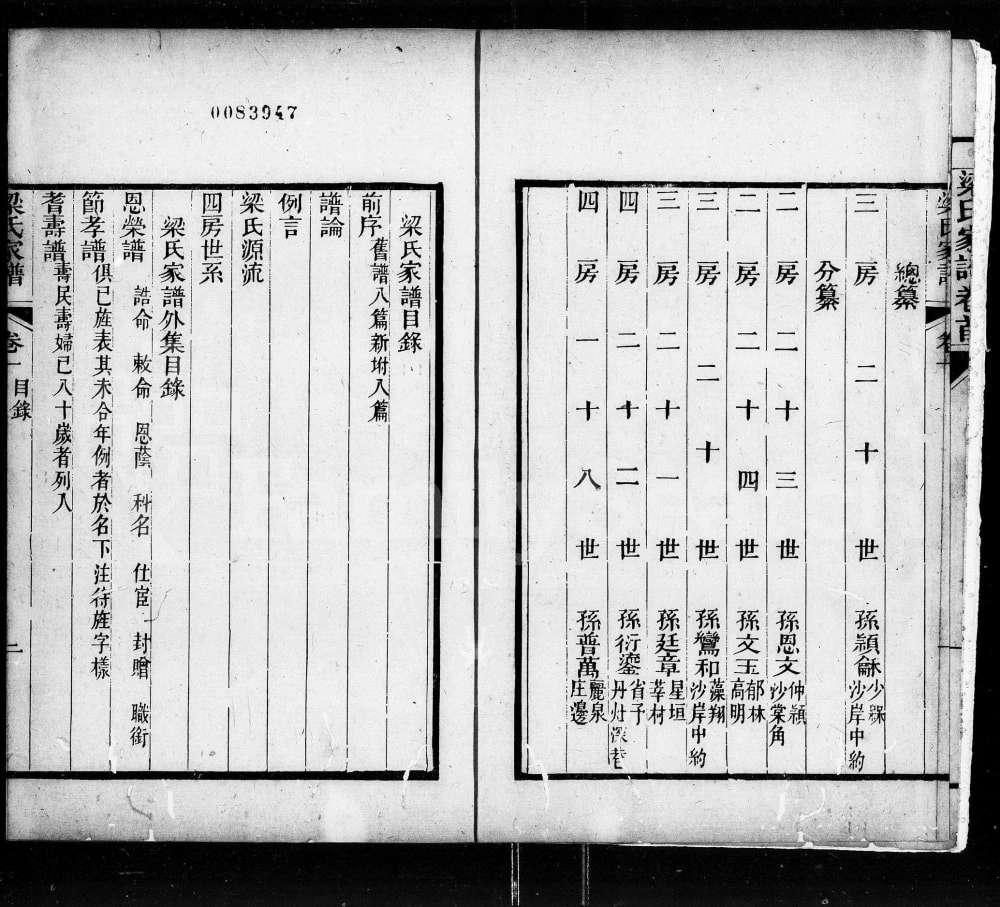 0083947
梁氏家譜卷首
梁氏家譜
卷一
總纂
三房二十世孫穎龢少穌沙岸中約
分纂
二房二十三世孫恩文仲穎沙棠角
二房二十四世孫文玉郁林高明
三房二十世孫鸞和藻翔沙岸中約
三房二十一世孫廷章星垣莘村
四房二十二世孫衍鎏省予丹灶深巷
四房一十八世孫普萬麗泉庄邊
梁氏家譜目錄
前序舊譜八篇新坿入篇
譜論
例言
梁氏源流
四房世系
梁氏家譜外集目錄
恩榮譜 誥命 敕命 恩蔭 科名 仕宦 封贈 職銜
節孝譜俱已旌表其未合年例者於名下注待旌字樣
耆壽譜壽民壽婦已八十歲者列入
梁氏家譜
卷一 目錄
二